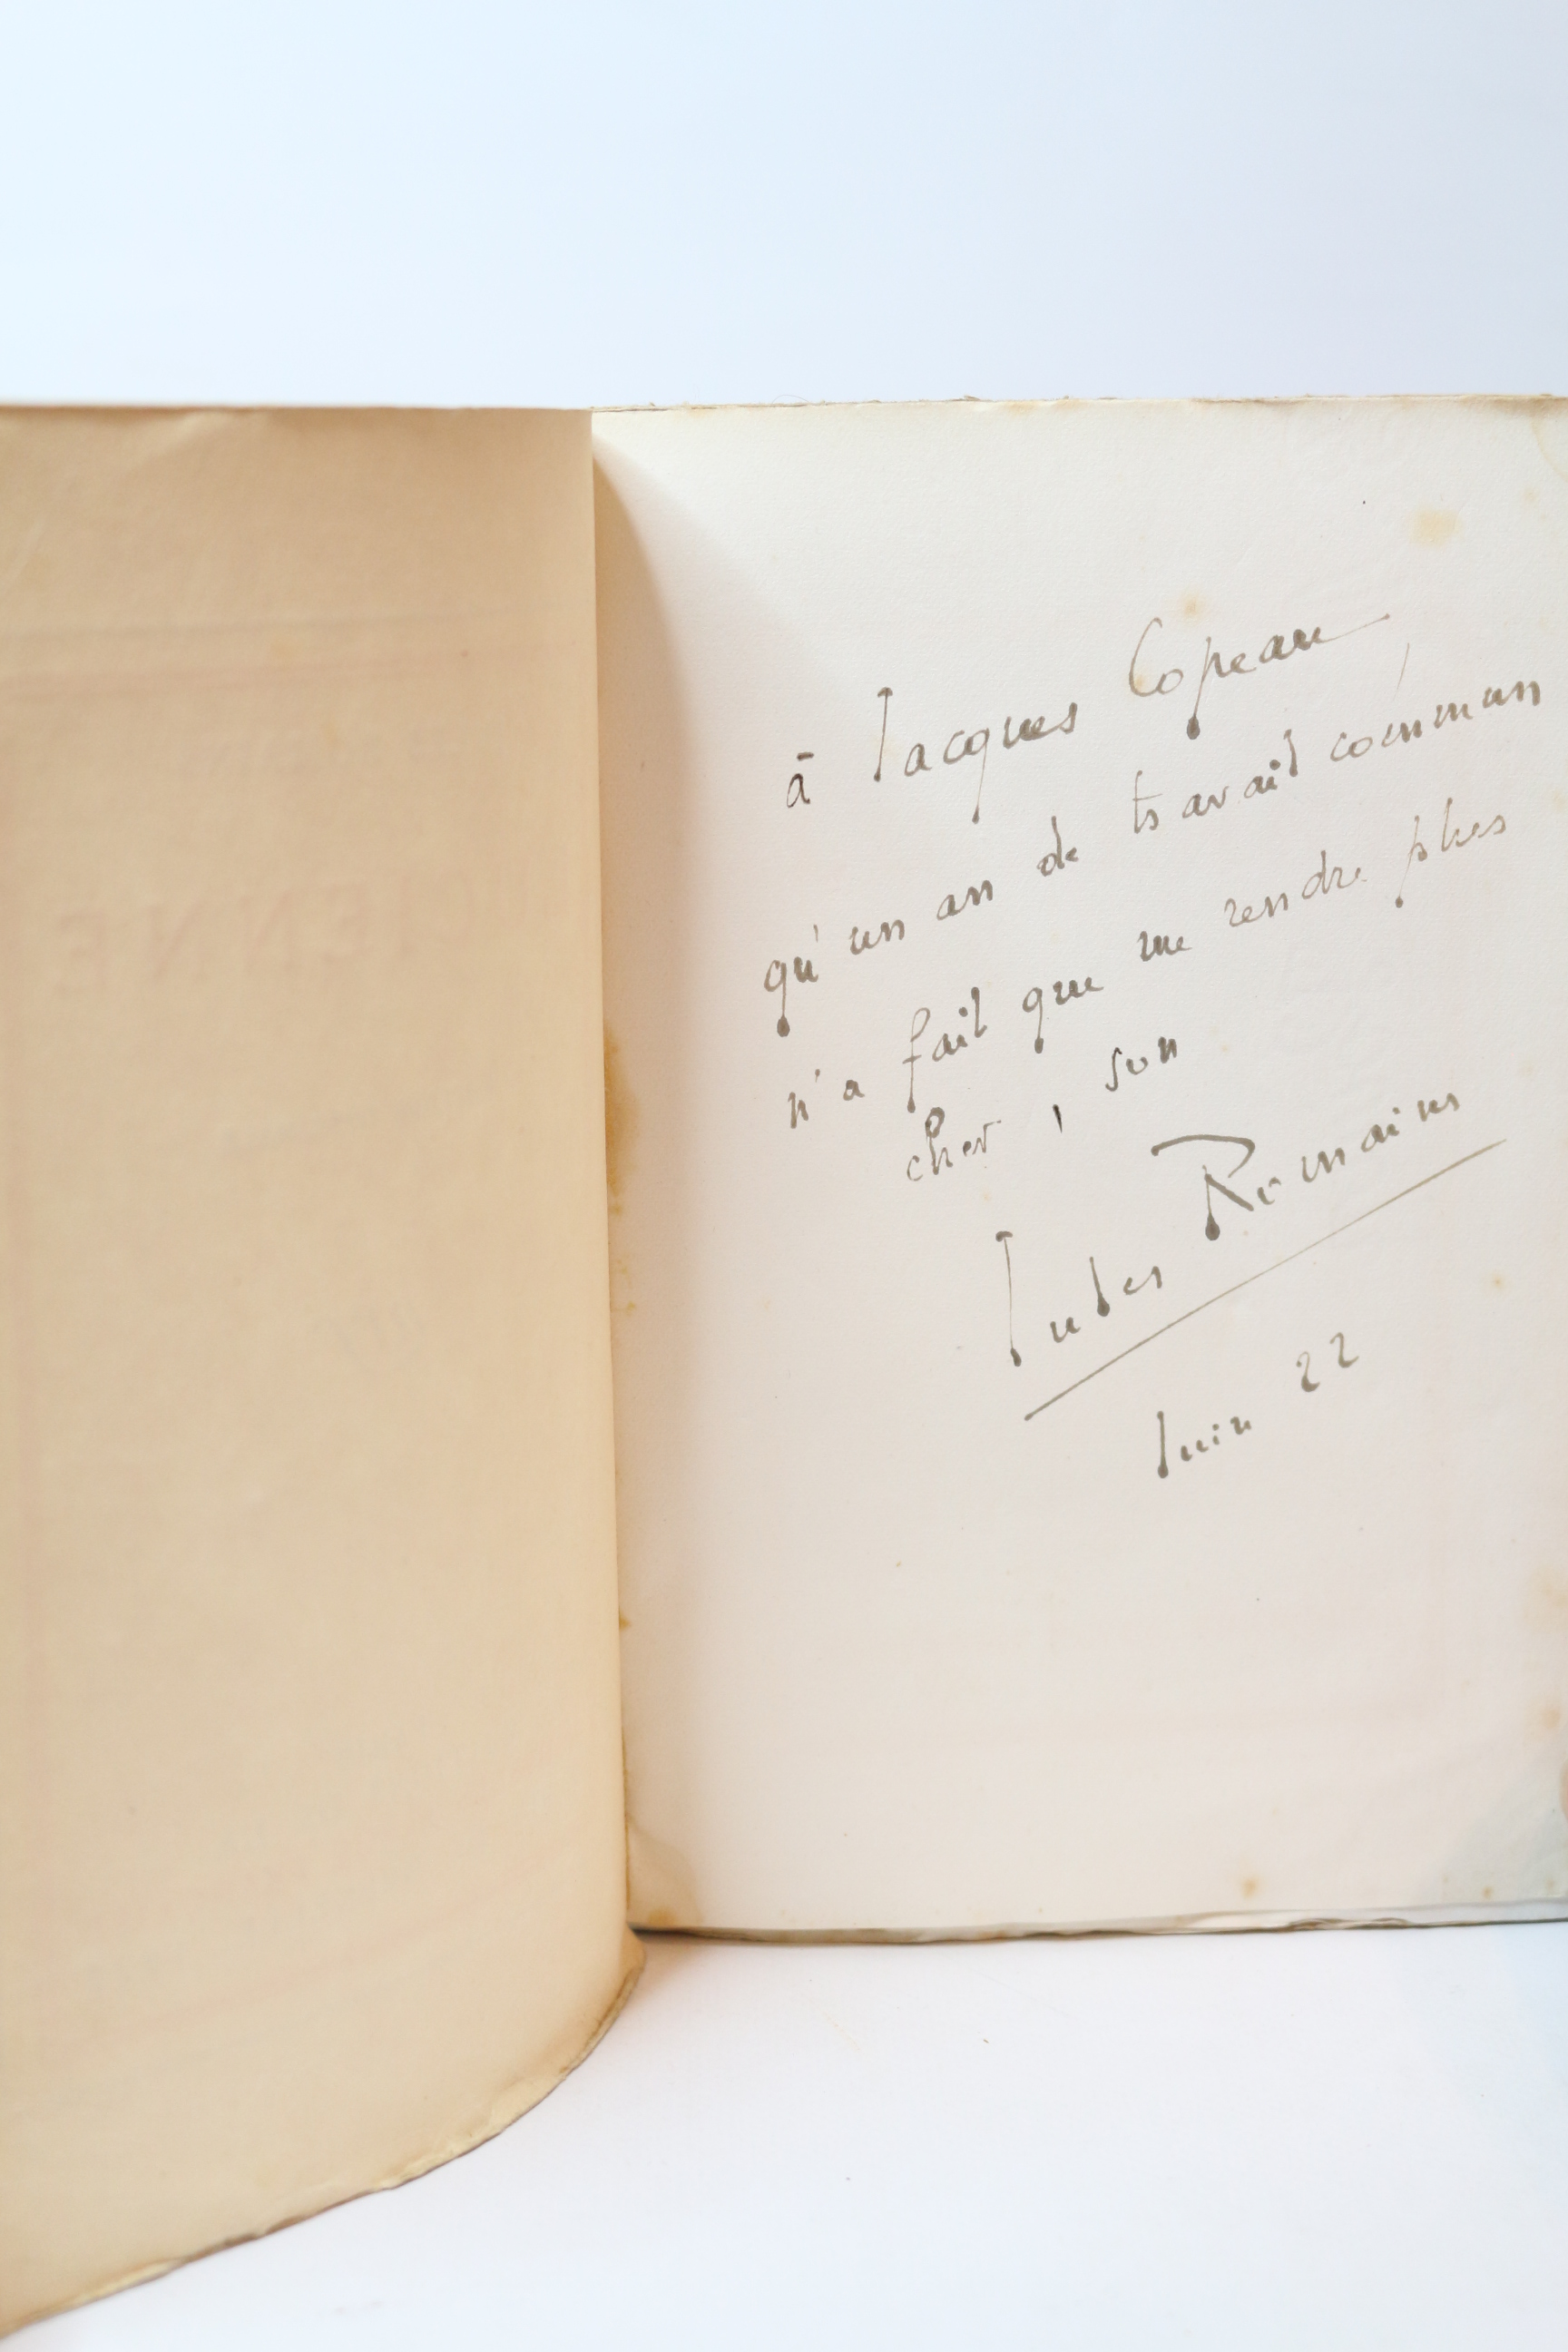 à Jacques Copeau,
qu'un an de travail commun
n'a fait que me rendre plus
cher, son
Jules Romains
Juin 22